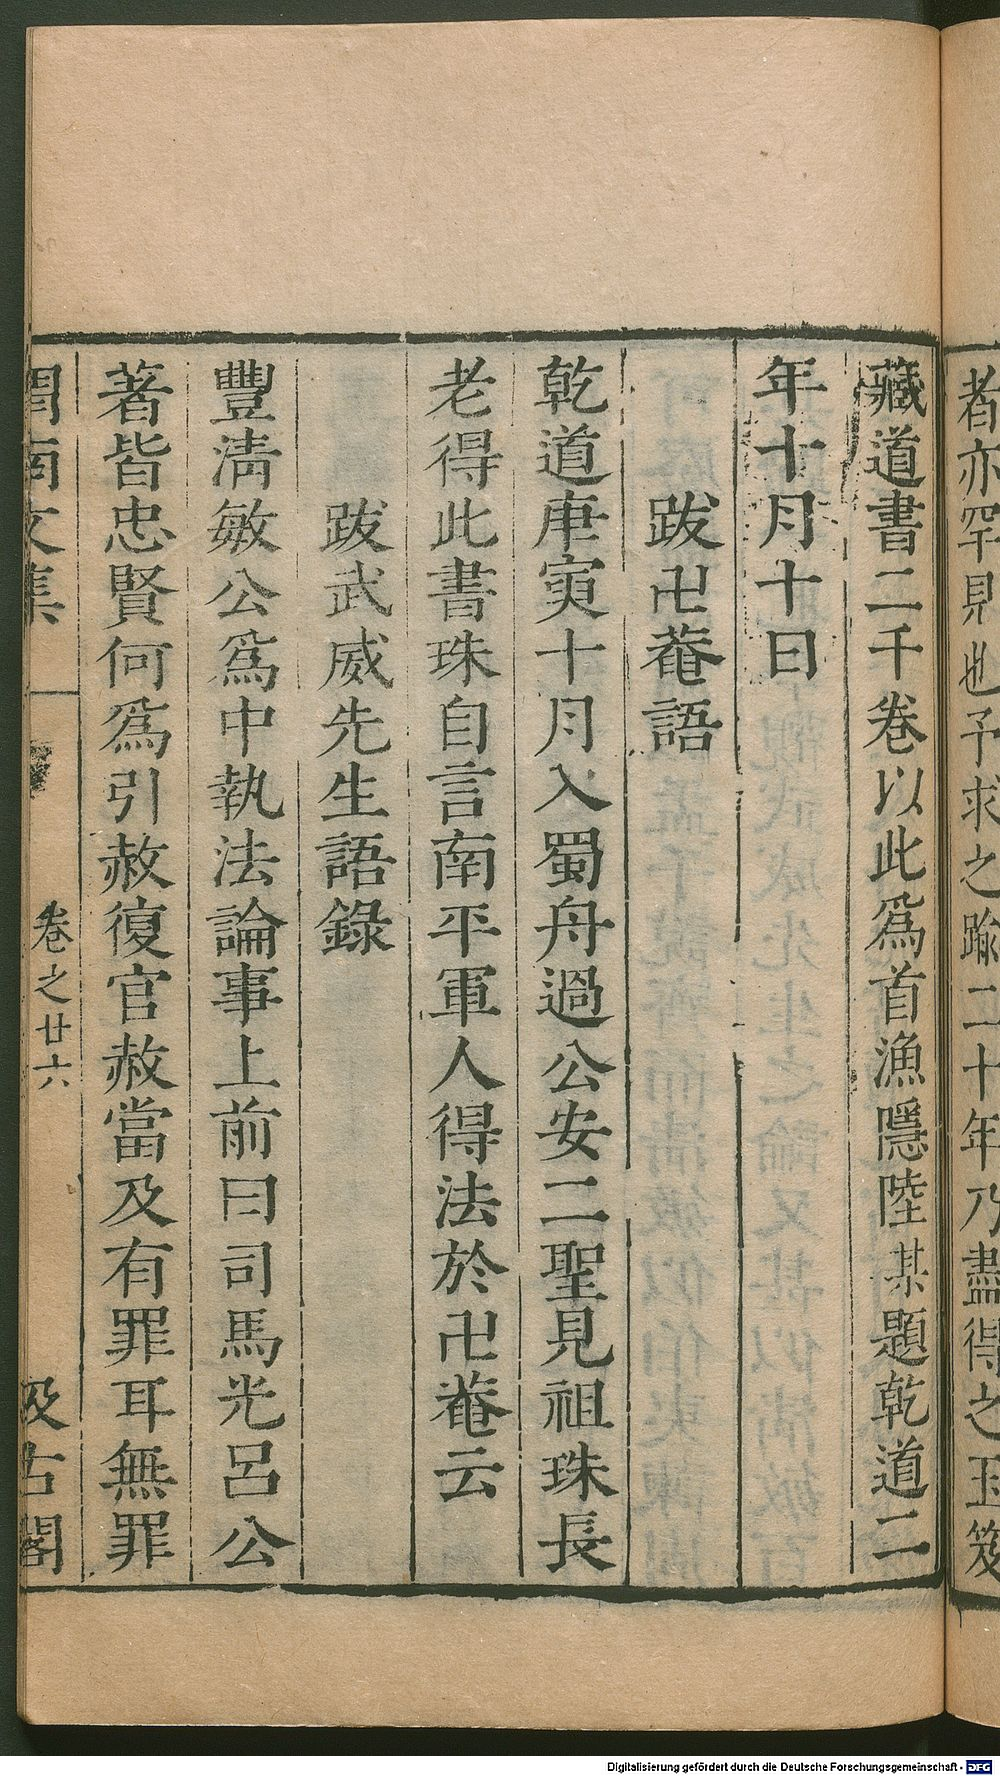 者亦罕見也予求之踰二十年乃盡得之玉笈
藏道書二千卷以此爲首漁隱陸某題乾道二
年十月十日
跋卍菴語
乾道庚寅十月入蜀舟過公安二聖見祖珠長
老得此書珠自言南平軍人得法於卍菴云
跋武威先生語錄
豐清敏公爲中執法論事上前曰司馬光呂公
著皆忠賢何爲引赦復官赦當及有罪耳無罪
渭南文集
卷之廿六
汲古閣
Digitalisierung gefördert durch die Deutsche Forschungsgemeinschaft - DFG